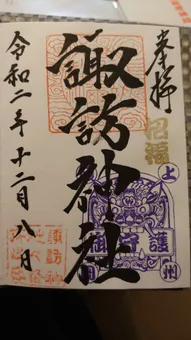 奉拝
招福
諏訪神社
上州
御守護
令和二年十二月八日